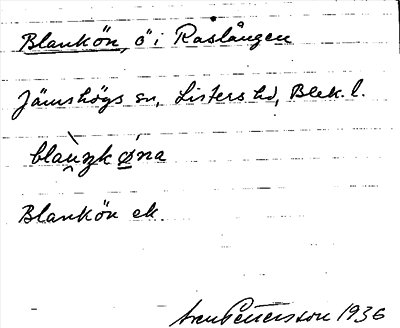 Blankön, ö i Raslången
Jämshögs sn, Listers hd, Blek. l.
blaŋk øna
Blankön ek.
Sven Pettersson 1936